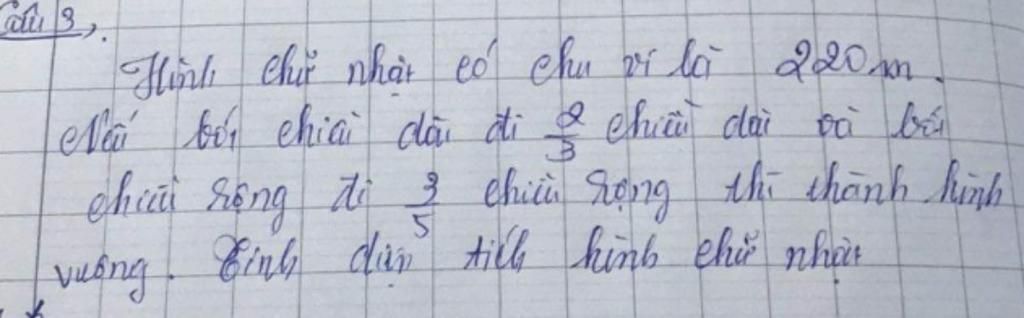 Câu 3,.
Hình chữ nhật có chu vi là 220 m.
Nếu bớt chiều dài đi 2/3 chiều dài và bớt
chiều rộng đi 3/5 chiều rộng thì thành hình
vuông. Tính diện tích hình chữ nhật